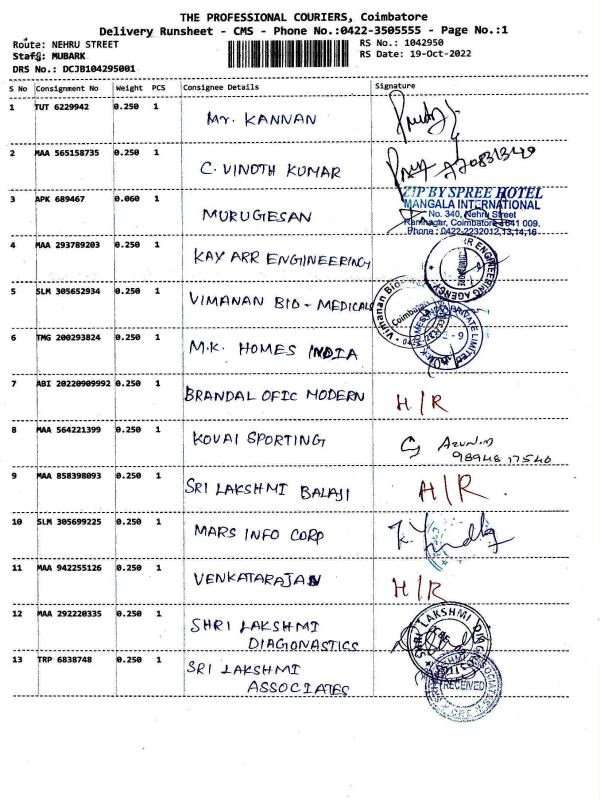 THE PROFESSIONAL COURIERS, Coimbatore
Delivery Runsheet - CMS - Phone No.:0422-3505555 - Page No.:1
Route: NEHRU STREET
RS No.: 1042950
Staff: MUBARK
RS Date: 19-Oct-2022
DRS No.: DCJB104295001
S No Consignment No Weight PCS Consignee Details Signature
1 TUT 6229942 0.250 1 Mr. KANNAN
2 MAA 565158735 0.250 1 C. VINOTH KUMAR
3 APK 689467 0.060 1 MURUGESAN
ZIP BY SPREE HOTEL
MANGALA INTERNATIONAL
No. 340, Nehru Street
Ramnagar, Coimbatore 641 009.
Phone : 0422-2232012,13,14,16
4 MAA 293789203 0.250 1 KAY ARR ENGINEERING
5 SLM 305652934 0.250 1 VIMANAN BIO - MEDICALS
6 TMG 200293824 0.250 1 M.K. HOMES INDIA
7 ABI 20220909992 0.250 1 BRANDAL OFIC MODERN H/R
8 MAA 564221399 0.250 1 KOVAI SPORTING
9 MAA 858398093 0.250 1 SRI LAKSHMI BALAJI H/R
10 SLM 305699225 0.250 1 MARS INFO CORP
11 MAA 942255126 0.250 1 VENKATARAJAN H/R
12 MAA 292220335 0.250 1 SHRI LAKSHMI
DIAGIONASTICS
13 TRP 6838748 0.250 1 SRI LAKSHMI
ASSOCIATES
RECEIVED